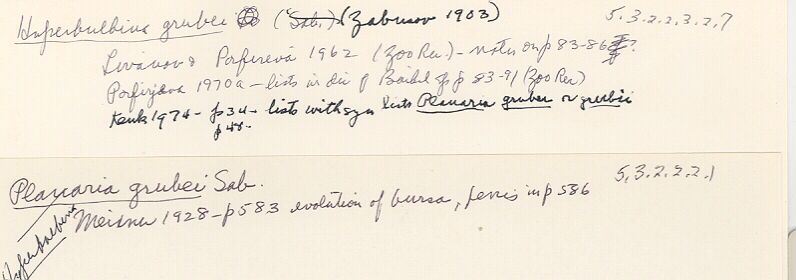 Hyperbulbina grubei (Sab.) (Zabusov 1903) 5.3.2.2.3.2.7
Livanov & Porfireva 1962 (Zoo Rec.) - notes on p 83-86?
Porfirjeva 1970a - lists in dic of Baikal spp p 83-91 (Zoo Rec)
Kenk 1974 - p 34 - lists with syn lists Planaria gruber or grubii
p 48 -
Planaria grubei Sab. 5.3.2.2.2.1
Hyperbulbina
Meixner 1928 - p 583 evolution of bursa, penis in p 586